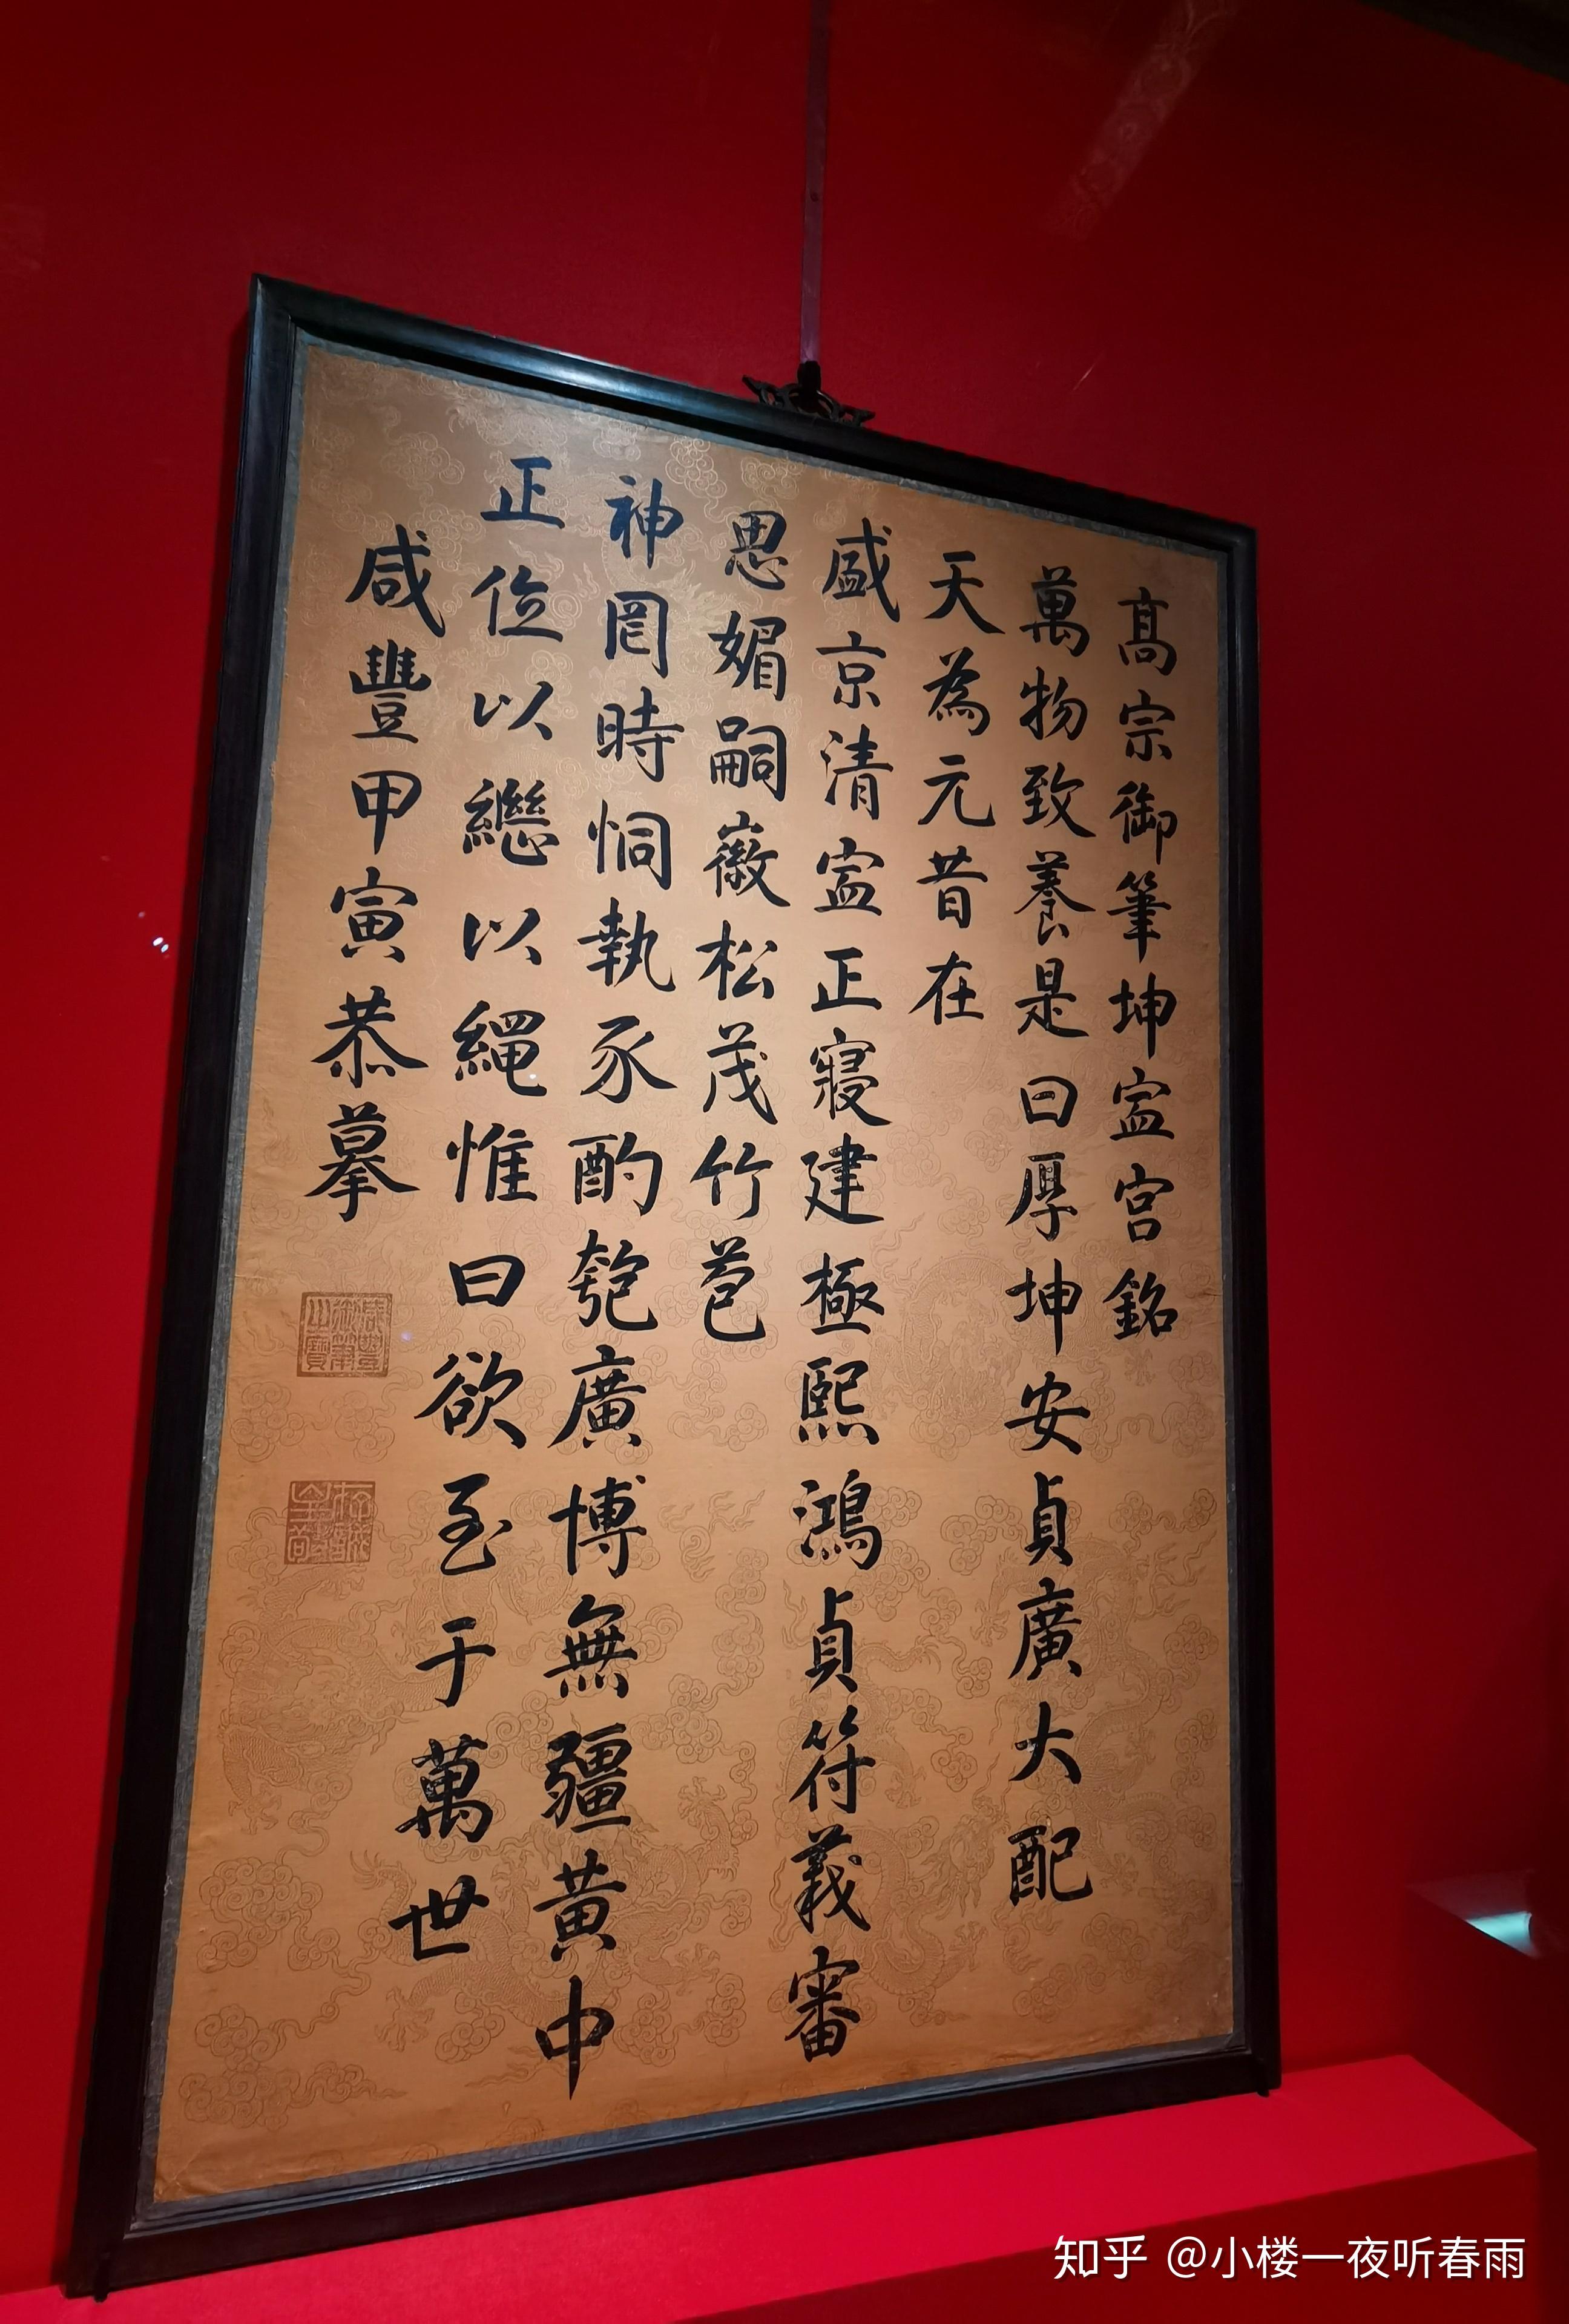 髙宗御筆坤寍宮銘
萬物致養是曰厚坤安貞廣大配
天為元昔在
盛京清寍正寢建極熙鴻貞符義審
思媚嗣徽松茂竹苞
神罔時恫執豕酌匏廣博無疆黃中
正位以繼以繩惟曰欲至于萬世
咸豐甲寅恭摹
咸豐御筆之寶
知乎 @小楼一夜听春雨